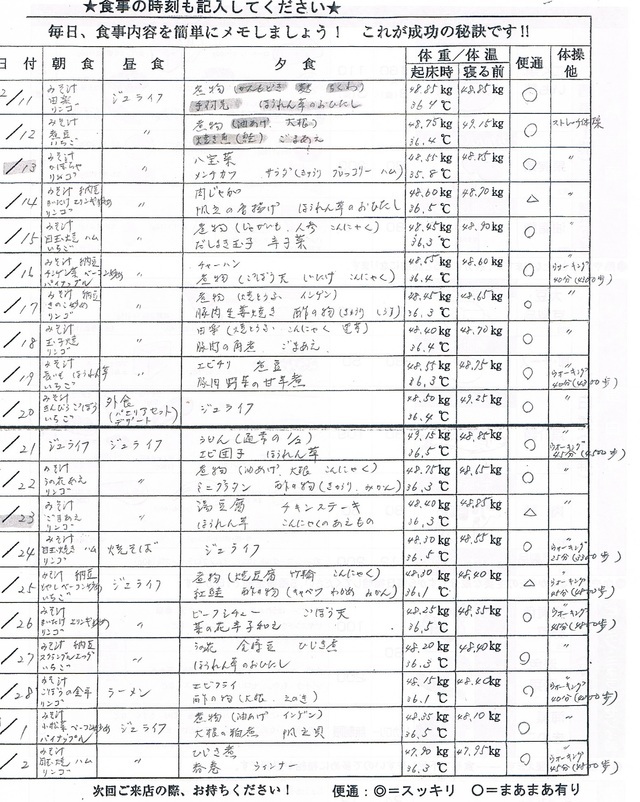 ★食事の時刻も記入してください★
毎日、食事内容を簡単にメモしましょう！ これが成功の秘訣です!!
日 付 朝 食 昼 食 夕 食 体 重／体 温 便通 体操他
起床時 寝る前
2/11 みそ汁 リンゴ ジュライフ 煮物 ほうれん草のおひたし 48.85kg 48.85kg 36.4℃ ○
/12 みそ汁 煮豆 いちご 〃 煮物 (油あげ、大根) 焼き魚 (鮭) ごまあえ 48.75kg 49.15kg 36.4℃ ○ ストレッチ体操
/13 みそ汁 かぼちゃ リンゴ 〃 八宝菜 メンチカツ サラダ (きゅうり ブロッコリー ハム) 48.55kg 48.85kg 35.8℃ ○ 〃
/14 みそ汁 納豆 リンゴ 〃 肉じゃが 帆立の唐揚げ ほうれん草のおひたし 48.60kg 48.70kg 36.5℃ △ 〃
/15 みそ汁 目玉焼 ハム いちご 〃 煮物 (じゃがいも、人参 こんにゃく) だしまき玉子 辛子菜 48.45kg 48.90kg 36.3℃ ○ 〃
/16 みそ汁 納豆 パイナップル 〃 チャーハン 煮物 (ごぼう天 しいたけ こんにゃく) 48.55kg 48.60kg 36.4℃ ○ ウォーキング 40分
/17 みそ汁 納豆 きのこ炒め リンゴ 〃 煮物 (焼とうふ インゲン) 豚肉生姜焼き 酢の物 (きゅうり しらす) 48.45kg 48.65kg 36.3℃ ○ 〃
/18 みそ汁 玉子焼 リンゴ 〃 田楽 (焼とうふ こんにゃく 里芋) 豚肉の角煮 ごまあえ 48.40kg 48.70kg 36.4℃ ○ 〃
/19 みそ汁 ほうれん草 いちご 〃 エビチリ 煮豆 豚肉野菜の甘辛煮 48.55kg 48.95kg 36.3℃ ○ 〃 ウォーキング 40分
/20 みそ汁 きんぴらごぼう いちご 外食 デザート ジュライフ 48.50kg 49.25kg 36.4℃ ○ 〃
/21 ジュライフ ジュライフ うどん (通常の1/2) エビ団子 ほうれん草 49.15kg 48.85kg 36.5℃ ○ ウォーキング 45分(4500歩)
/22 みそ汁 リンゴ 〃 煮物 (油あげ、大根 こんにゃく) ミニグラタン 酢の物 (きゅうり、みかん) 48.75kg 48.65kg 36.3℃ ○ 〃
/23 みそ汁 ごまあえ リンゴ 〃 湯豆腐 チキンステーキ ほうれん草 こんにゃくのあえもの 48.40kg 48.85kg 36.3℃ △ 〃
/24 みそ汁 目玉焼き ハム リンゴ 焼そば ジュライフ 48.30kg 48.55kg 36.5℃ ○ ウォーキング 25分
/25 みそ汁 納豆 いちご ジュライフ 煮物 (焼豆腐 竹輪 こんにゃく) 紅鮭 酢の物 (キャベツ わかめ みかん) 48.30kg 48.40kg 36.1℃ △ 〃 ウォーキング 45分
/26 みそ汁 リンゴ 〃 ビーフシチュー ごぼう天 菜の花辛子和え 48.25kg 48.35kg 36.5℃ ○ 〃 ウォーキング 45分
/27 みそ汁 納豆 スクランブルエッグ いちご 〃 うの花 金時豆 ひじき煮 ほうれん草のおひたし 48.20kg 48.40kg 36.3℃ ○ 〃
/28 みそ汁 リンゴ ラーメン エビフライ 酢の物 48.15kg 48.40kg 36.1℃ ○ ウォーキング 40分
/1 みそ汁 パイナップル ジュライフ 煮物 (油あげ インゲン) 大根の粕煮 帆立貝 48.35kg 48.10kg 36.5℃ ○ 〃
/2 みそ汁 目玉焼 ハム リンゴ 〃 ひじき煮 春巻 ウィンナー 47.90kg 47.95kg 36.3℃ ○ 〃 ウォーキング 45分
次回ご来店の際、お持ちください！ 便通：◎＝スッキリ ○＝まあまあ有り